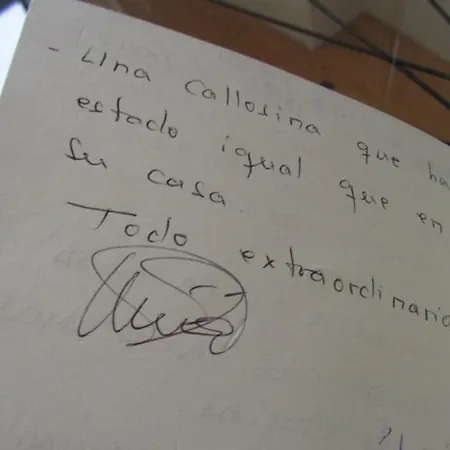 - Una callosina que ha
estado igual que en
su casa.
Todo extraordinario